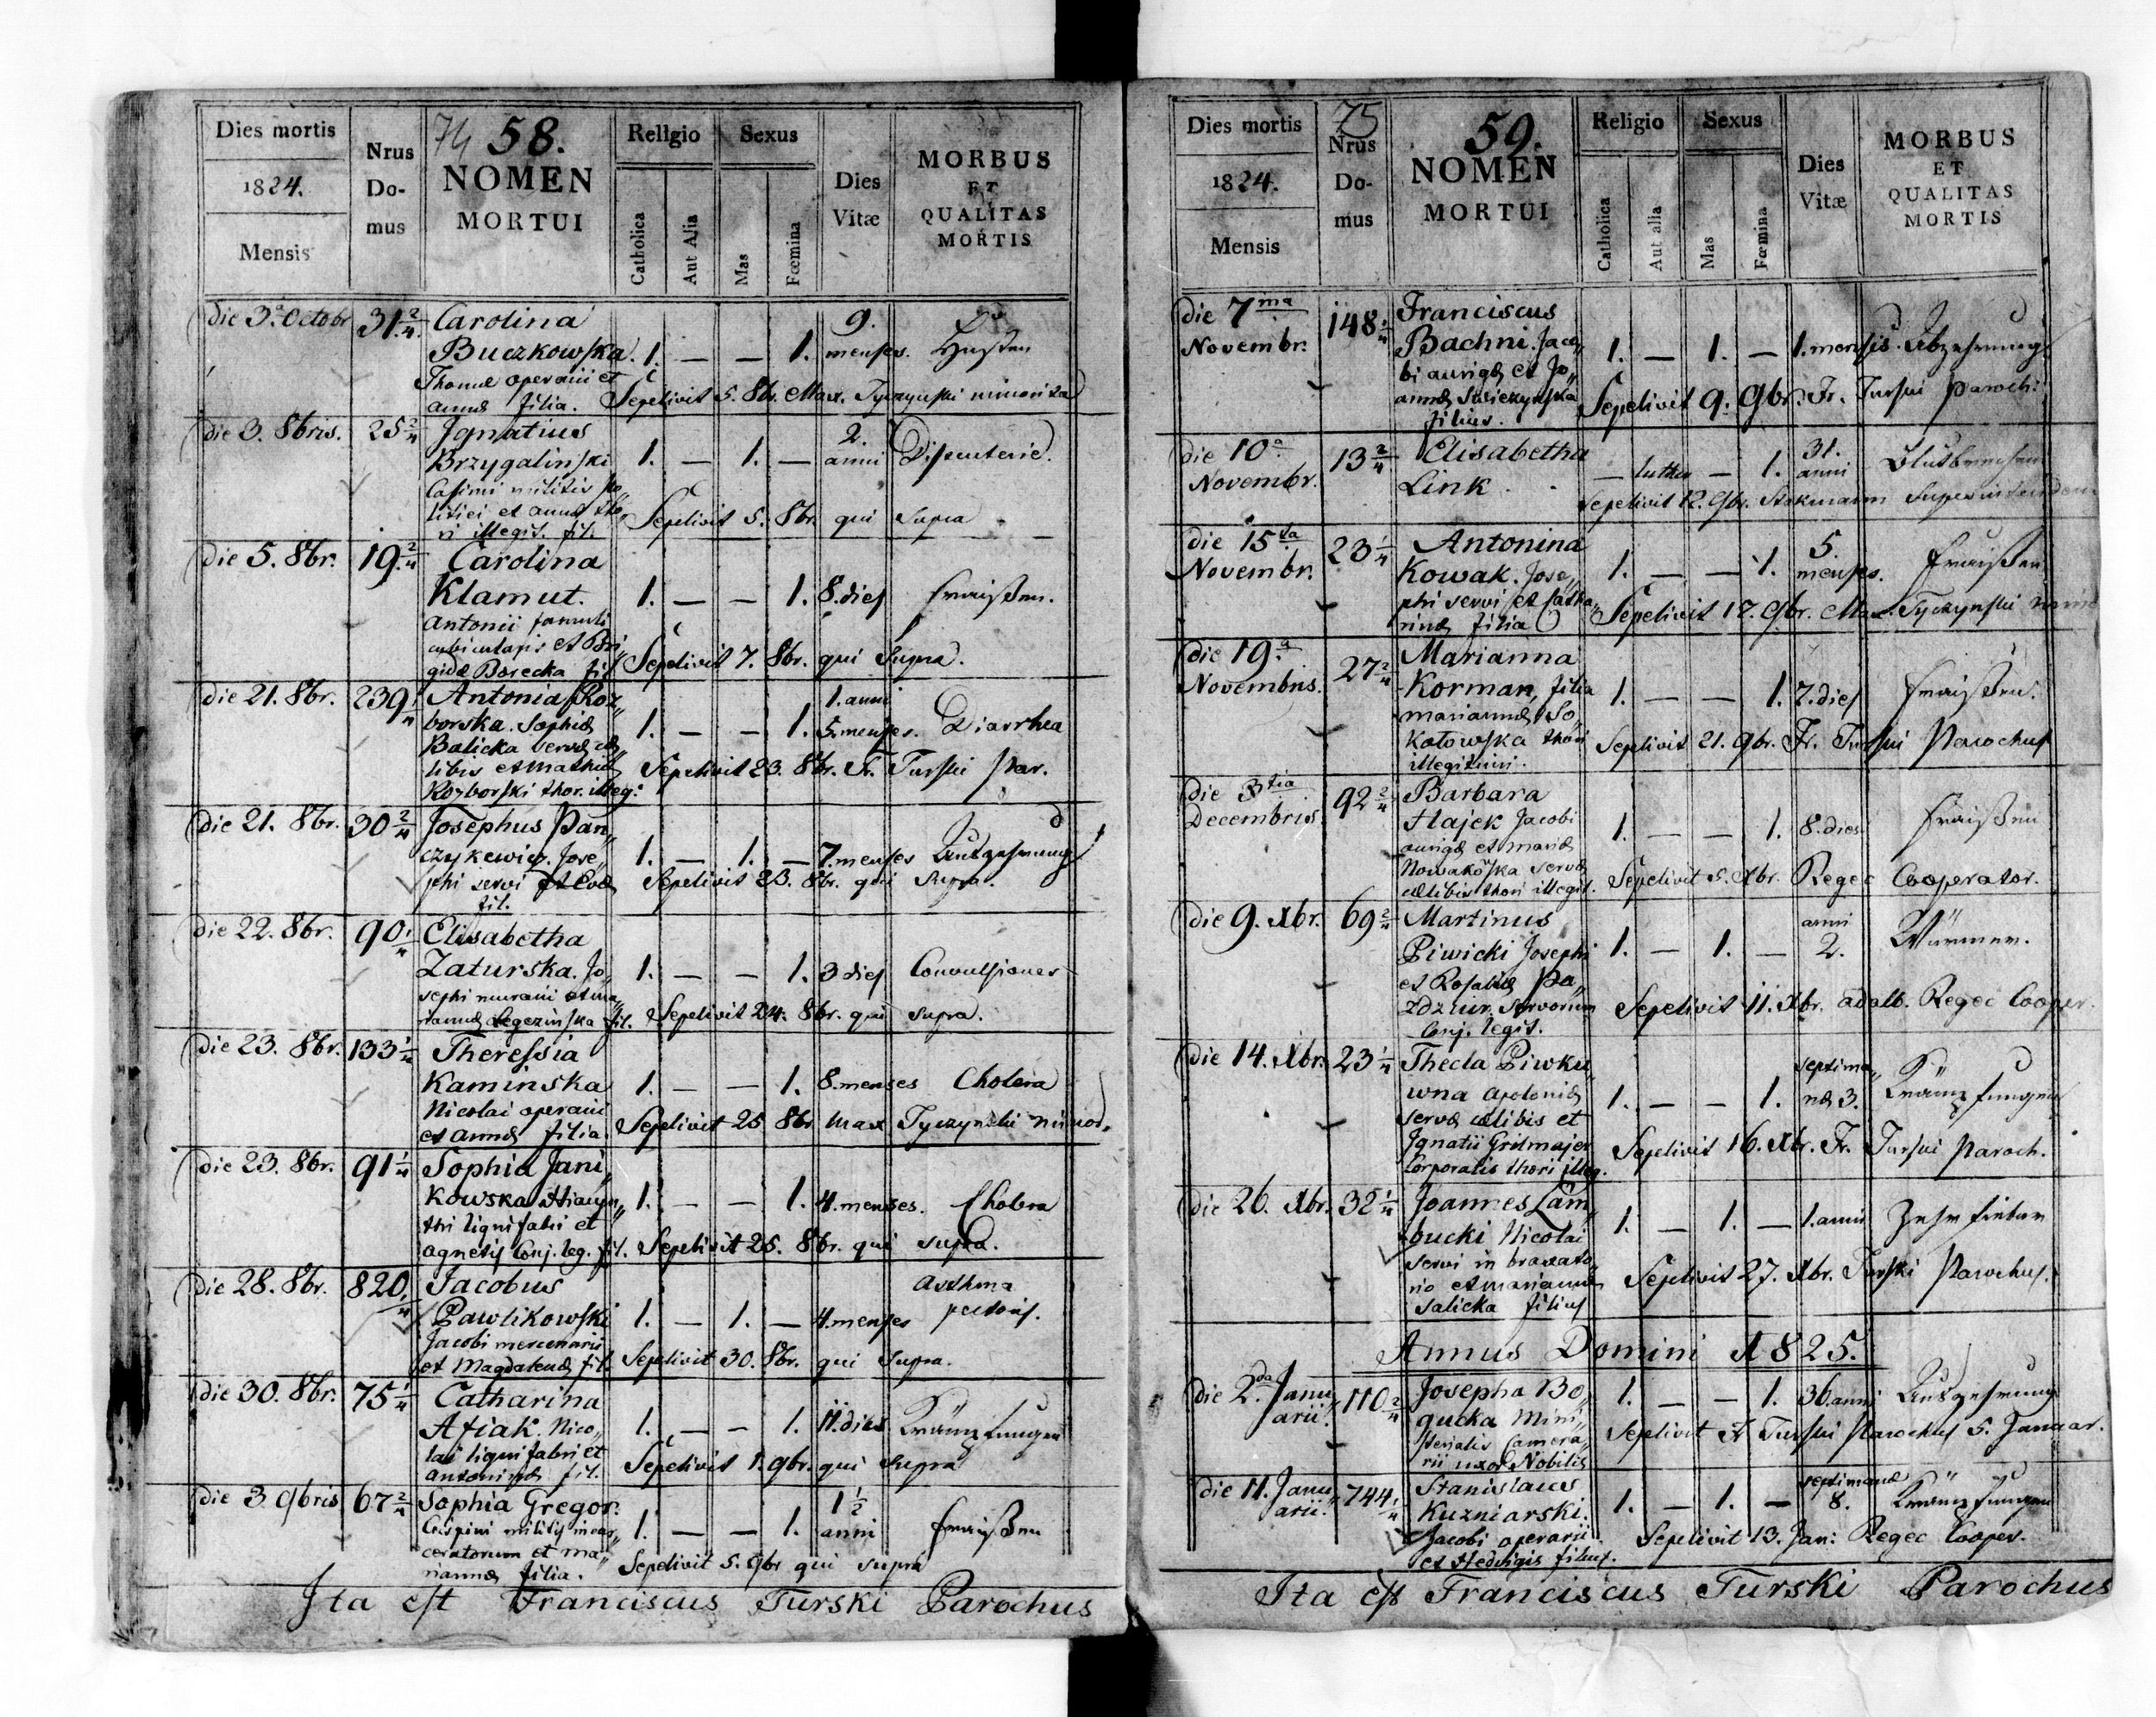 Dies mortis
1824.
Mensis
Nrus
Do-
mus
74 58.
NOMEN
MORTUI
Religio
Catholica
Aut Alia
Sexus
Mas
Fœmina
Dies
Vitæ
MORBUS
ET
QUALITAS
MORTIS
die 3a Octobr 31 2/4 Carolina 9.
Buczkowska. 1. — — 1. menses. Husten
Thomæ operarii et
annæ filia. Sepelivit 5. 8br. Max. Tyczynski minorita
die 3. 8bris. 25 2/4 Ignatius 2.
Brzygalinski 1. — 1. — anni Disenterie.
Casimi militis po„
litiei et annæ tho„ Sepelivit 5. 8br. qui supra
ri illegit. fil.
die 5. 8br. 19 2/4 Carolina
Klamut. 1. — — 1. 8. dies Fraißen.
Antonii famuli
cubicularis et Bri„
gidæ Borecka fil Sepelivit 7. 8br. qui supra.
die 21. 8br. 239 1/4 Antonia Roz„ 1. anni
borska. Sophiæ 1. — — 1. 5. menses. Diarrhea
Balicka servæ cæ„
libis et Mathiæ Sepelivit 23. 8br. Fr. Turski Par.
Rozborski thor. illeg:
die 21. 8br. 30 2/4 Josephus Pan„
czykewicz. Jose„ 1. — 1. — 7. menses Auszehrung
phi servi et Evæ Sepelivit 23. 8br. qui supra.
fil.
die 22. 8br. 90 1/4 Elisabetha
Zaturska. Jo„ 1. — — 1. 3 dies Convulsiones
sephi murarii et ma„
riannæ Legezinska fil. Sepelivit 24. 8br. qui supra.
die 23. 8br. 133 1/4 Theressia
Kaminska 1. — — 1. 8. menses Cholera
Nicolai operarii
et annæ filia. Sepelivit 25 8br Max Tyczynski minor.
die 23. 8br. 91 1/4 Sophia Jani„
kowska Hiacyn„ 1. — — 1. 4. menses. Cholera
thi lignifabri et
agnetis Conj. leg. fil. Sepelivit 25. 8br. qui supra.
die 28. 8br. 820 1/4 Jacobus Asthma
Pawlikowski 1. — 1. — 4. menses pectoris.
Jacobi mercenarii
et Magdalenæ fil. Sepelivit 30. 8br. qui supra.
die 30. 8br. 75 1/4 Catharina
Atiak. Nico„ 1. — — 1. 11. dies Krämpfungen
lai lignifabri et
antoninæ fil. Sepelivit 1. 9br. qui supra
die 3 9bris 67 2/4 Sophia Gregor. 1 1/2
Crispini militis incar„ 1. — — 1. anni Fraißen
ceratorum et ma„
riannæ filia. Sepelivit 5. 9br qui supra
Ita est Franciscus Turski Parochus
Dies mortis
1824.
Mensis
75
Nrus
Do-
mus
59.
NOMEN
MORTUI
Religio
Catholica
Aut alia
Sexus
Mas
Fœmina
Dies
Vitæ
MORBUS
ET
QUALITAS
MORTIS
die 7ma 148 1/4 Franciscus
Novembr. Bachni. Jaco„ 1. — 1. — 1. mensis. Abzehrung
bi aurigæ et Jo„
annæ Swieczynska Sepelivit 9. 9br. Fr. Turski Paroch:
filius.
die 10a 13 2/4 Elisabetha 31.
Novembr. Link — luther — 1. anni Blutbrechen
Sepelivit 12. 9br. Stokmann Superintendem
die 15ta 23 1/4 Antonina 5.
Novembr. Kowak. Jose„ 1. — — 1. menses. Fraißen
phi servi et Catha„
rinæ filia Sepelivit 17. 9br. Max. Tyczynski
die 19a 27 2/4 Marianna
Novembris. Korman, filia 1. — — 1. 7. dies Fraißen.
mariannæ So„
kołowska thori Sepelivit 21. 9br. Fr. Turski Parochus
illegitimi.
die 3tia 92 2/4 Barbara
Decembris Hajek Jacobi 1. — — 1. 8. dies Fraißen
aurigæ et mariæ
Nowakoska servæ Sepelivit 5. Xbr. Regec Cooperator.
cælibis thori illegit.
die 9. Xbr. 69 2/4 Martinus anni
Piwicki Josephi 1. — 1. — 2. Würmer.
et Rosaliæ Pa„
zdzuir. servorum Sepelivit 11. Xbr. adalb. Regec Cooper.
Conj. legit.
die 14. Xbr. 23 1/4 Thecla Piwku„ septima„
wna apoloniæ 1. — — 1. næ 3. Krämpfungen
servæ cælibis et
Ignatii Gritmajer Sepelivit 16. Xbr. Fr. Turski Paroch.
Corporalis thori illeg.
die 26. Xbr. 32 1/4 Joannes Lam„
bucki Nicolai 1. — 1. — 1. anni Zehrfieber
servi in braxato„
rio et mariannæ Sepelivit 27. Xbr. Turski Parochus.
Salicka filius
Annus Domini 1825.
die 2da Janu„ 110 2/4 Josepha Bo„ 1. — — 1. 36. anni Auszehrung
arii. gucka Mini„
sterialis Camera„ Sepelivit Fr Turski Parochus 5. Januar.
rii uxor Nobilis
die 11. Janu„ 744 1/4 Stanislaus septimanæ
arii. Kuzniarski. 1. — 1. — 8. Krämpfungen
Jacobi operarii Sepelivit 13. Jan: Regec Cooper.
et Hedvigis filius.
Ita est Franciscus Turski Parochus